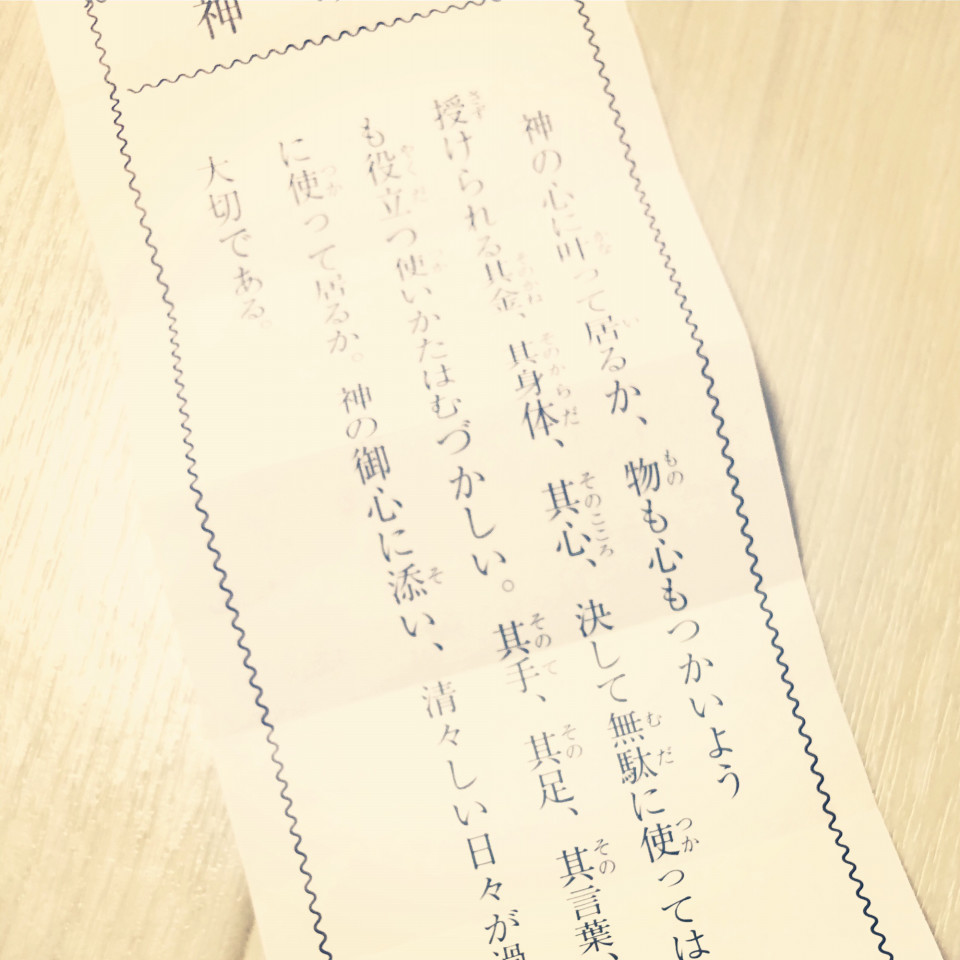 神
神の心に叶って居るか、物も心もつかいよう
授けられる其金、其身体、其心、決して無駄に使っては
も役立つ使いかたはむづかしい。其手、其足、其言葉、
に使って居るか。神の御心に添い、清々しい日々が過
大切である。